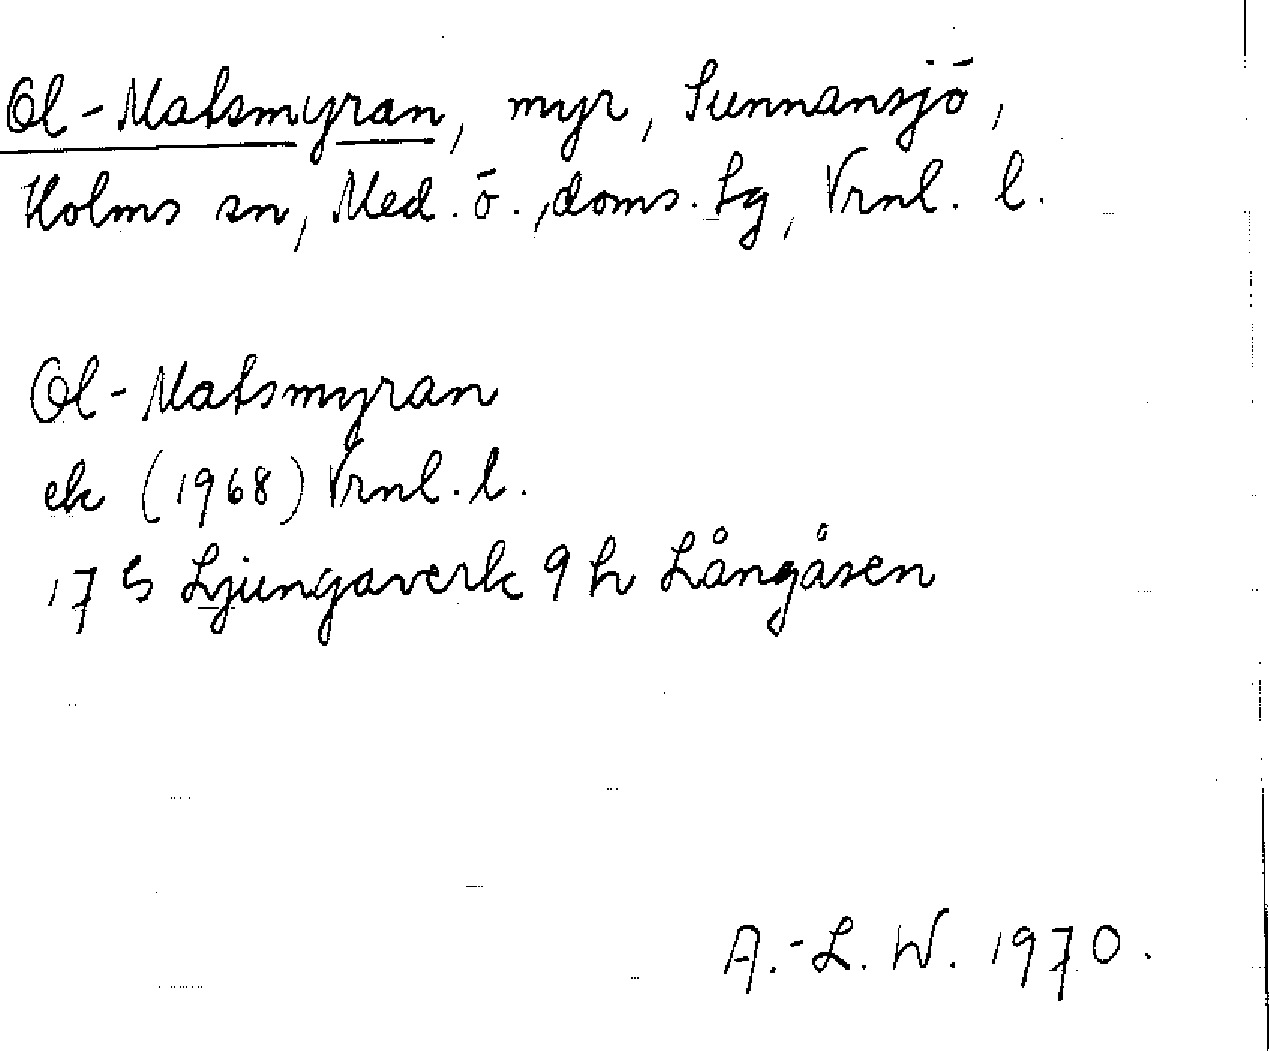 Ol-Matsmyran, myr, Sunnansjö,
Holms sn, Med. ö., doms. tg, Vrnl. l.
Ol-Matsmyran
ek (1968) Vrnl. l.
17 G Ljungaverk 9 h Långåsen
A.-L. W. 1970.